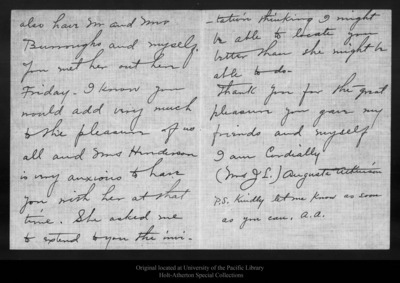 also have Mr and Mrs
Burroughs and myself.
You met her out here
Friday. I know you
would add very much
to the pleasure of us
all and Mrs Henderson
is very anxious to have
you with her at that
time. She asked me
to extend to you the invi-
-tation thinking I might
be able to locate you
better than she might be
able to do.
Thank you for the great
pleasure you gave my
friends and myself
I am Cordially
(Mrs J L.) Augusta
P.S. Kindly let me know as soon
as you can, A.A.
Original located at University of the Pacific Library
Holt-Atherton Special Collections